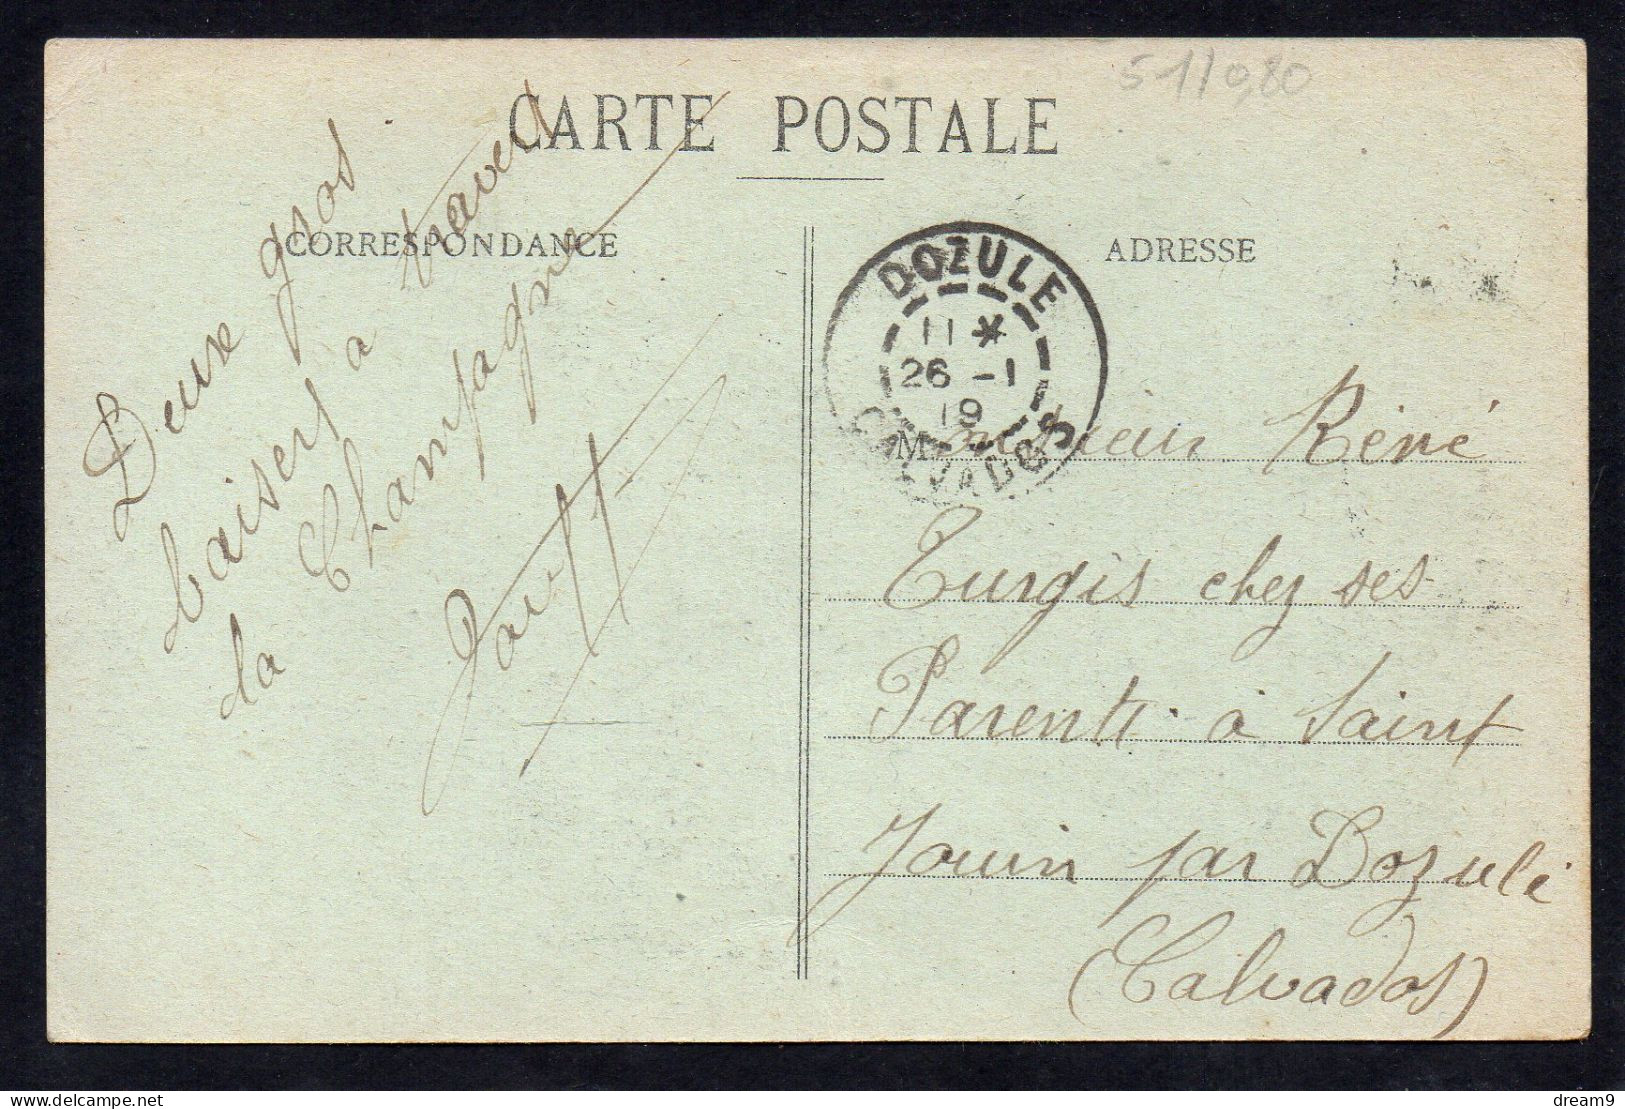 51/0,80
CARTE POSTALE
CORRESPONDANCE
ADRESSE
Deuse gros
baisers a travers
la Champagne
DOZULE
11 *
26 - 1
19
CALVADOS
Monsieur Réné
Turgis chez ses
Parents à Saint
Jouin par Dozulé
(Calvados)
delcampe.net
dream9